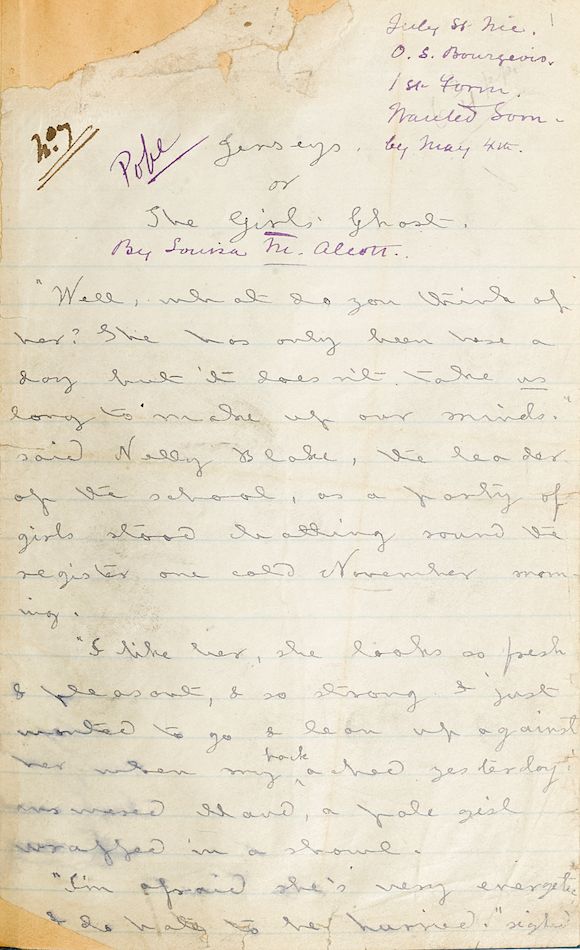 July St Nic.
O. S. Bourgeois.
1st Form.
Wanted Som-
by May 4th.
Jerseys.
or
The Girls' Ghost.
By Louisa M. Alcott.
"Well, what do you think of
her? She has only been here a
day but it does n't take us
long to make up our minds."
said Nelly Blake, the leader
of the school, as a party of
girls stood chatting round the
register one cold November morn-
ing.
"I like her, she looks so fresh
& pleasant, & so strong. I just
wanted to go & lean up against
her when my back ached yesterday."
answered Maud, a pale girl
wrapped in a shawl.
"I'm afraid she's very energetic
& I do hate to be hurried." sighed